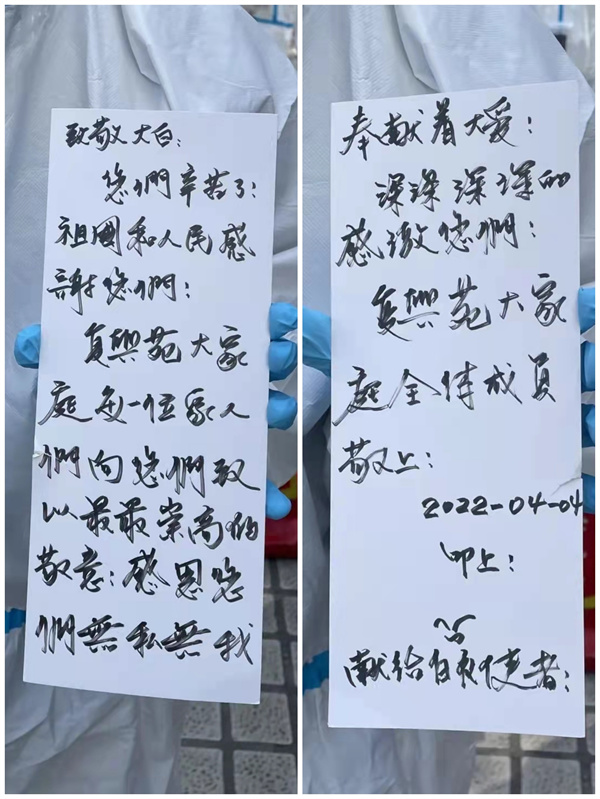 致敬大白:
您們辛苦了:
祖國和人民感
謝您們:
复興苑大家
庭每一位家人
們向您們致
以最最崇高的
敬意:感恩您
們無私無我
奉献着大爱:
深深深深的
感激您們:
复興苑大家
庭全体成员
敬上:
2022-04-04
叩上:
献给白衣使者: